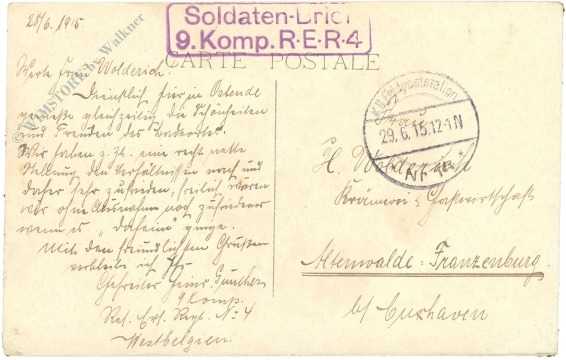 28/6. 1915
Soldaten-Brief
9. Komp. R·E·R·4
CARTE POSTALE
Werte Frau Wolderich!
Dienstlich hier in Ostende
genieße gleichzeitig die Schönheiten
und Freuden des Badeortes.
Wir haben z. Zt. eine recht nette
Stellung den Verhältnissen nach und
daher sehr zufrieden, freilich wären
wir ohne Ausnahme noch zufriedener
wenn es "daheim" ginge.
Mit den freundlichsten Grüßen
verbleibe ich
Gefreiter Heinr. Gunther
9 Komp.
Res. Ers. Regt. No 4
Westbelgien.
Feldpoststation
29.6.15.12-1N
Nr.
Frau
H. Wolderich
Krämerei & Gastwirtschaft
Altenwalde: Franzenburg.
b/ Cuxhaven
© WIMSTORE by Walkner